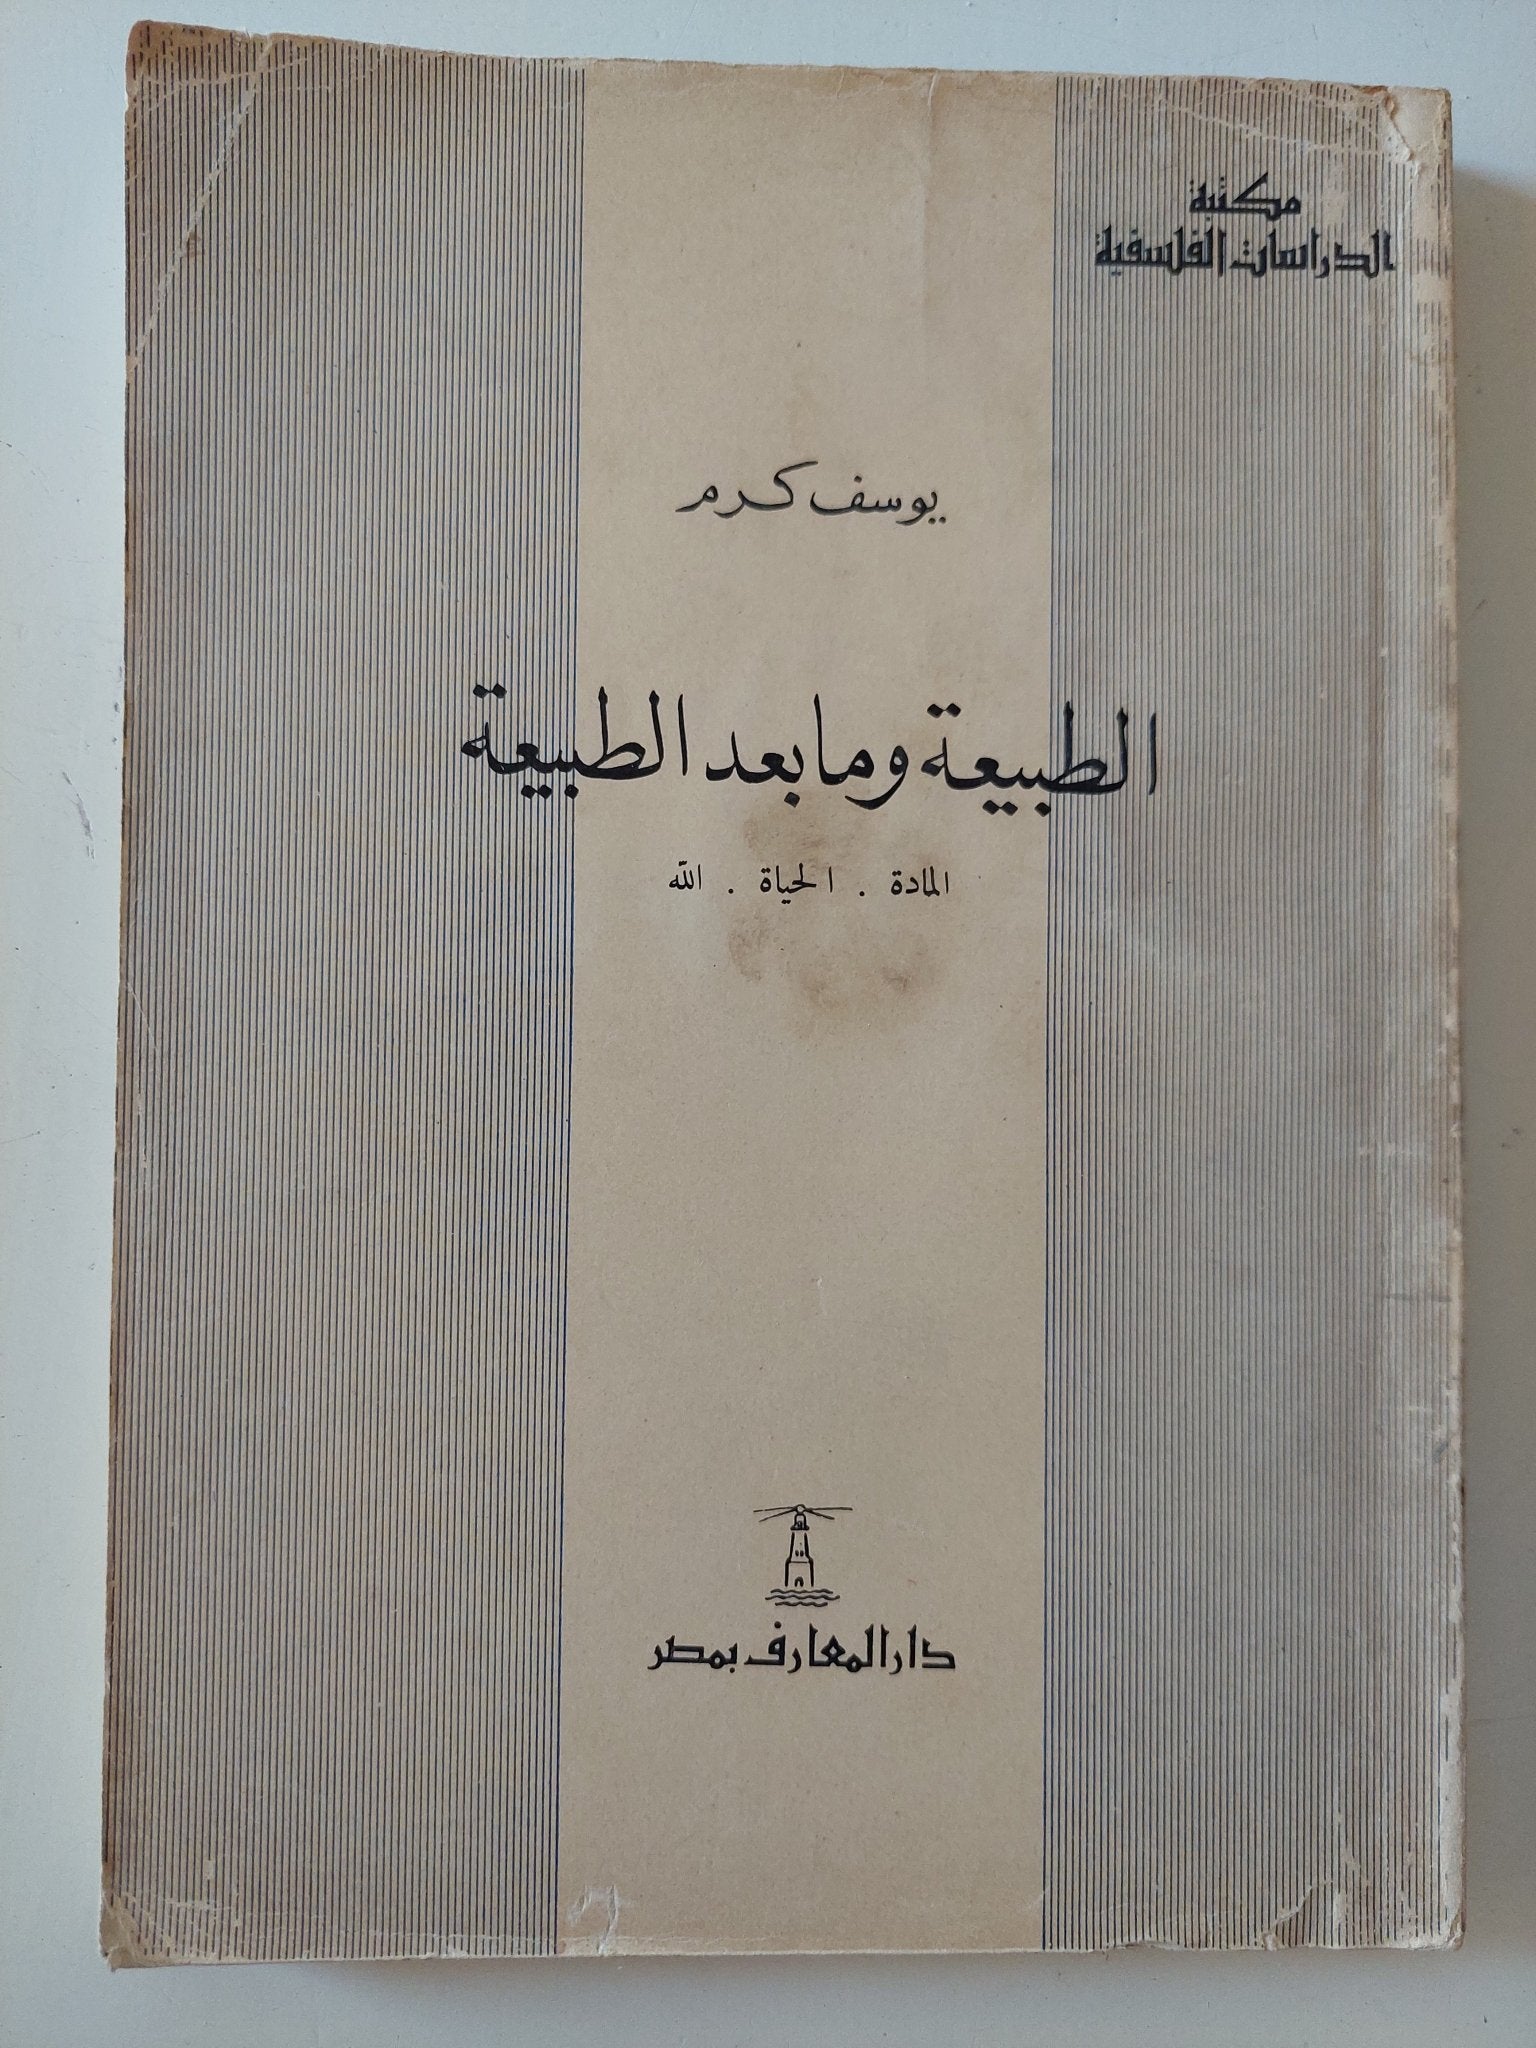 مكتبة
الدراسات الفلسفية
يوسف كرم
الطبيعة وما بعد الطبيعة
المادة . الحياة . الله
دار المعارف بمصر